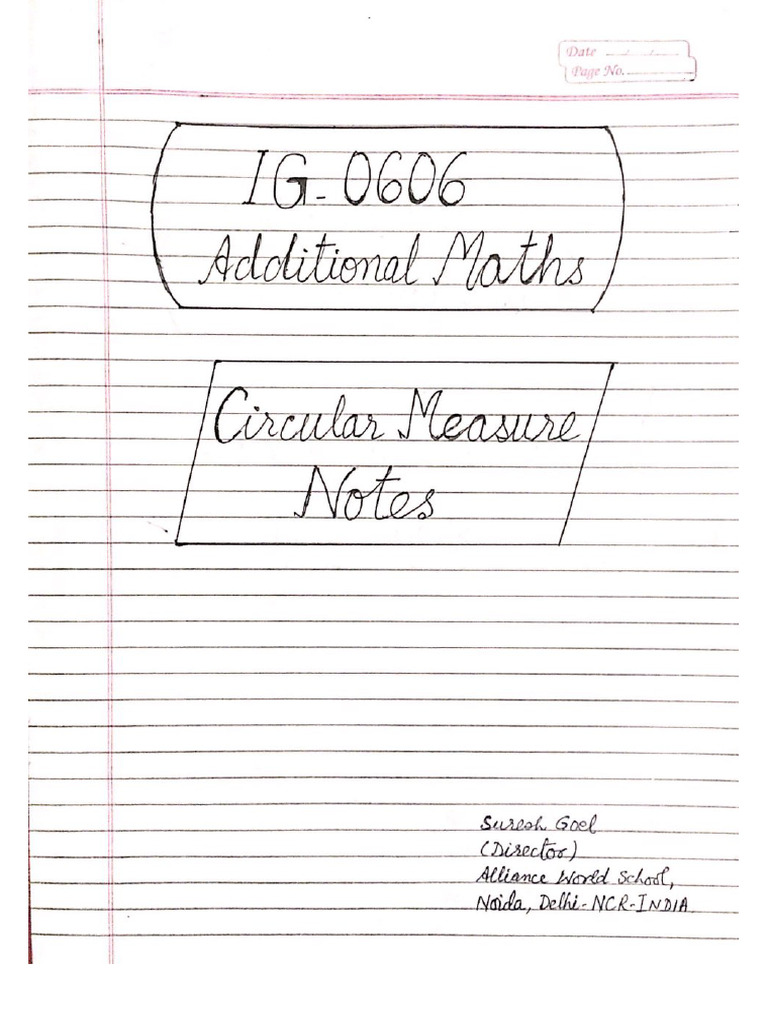 Date
Page No.
IG-0606
Additional Maths
Circular Measure
Notes
Suresh Goel
(Director)
Alliance World School,
Noida, Delhi-NCR-INDIA